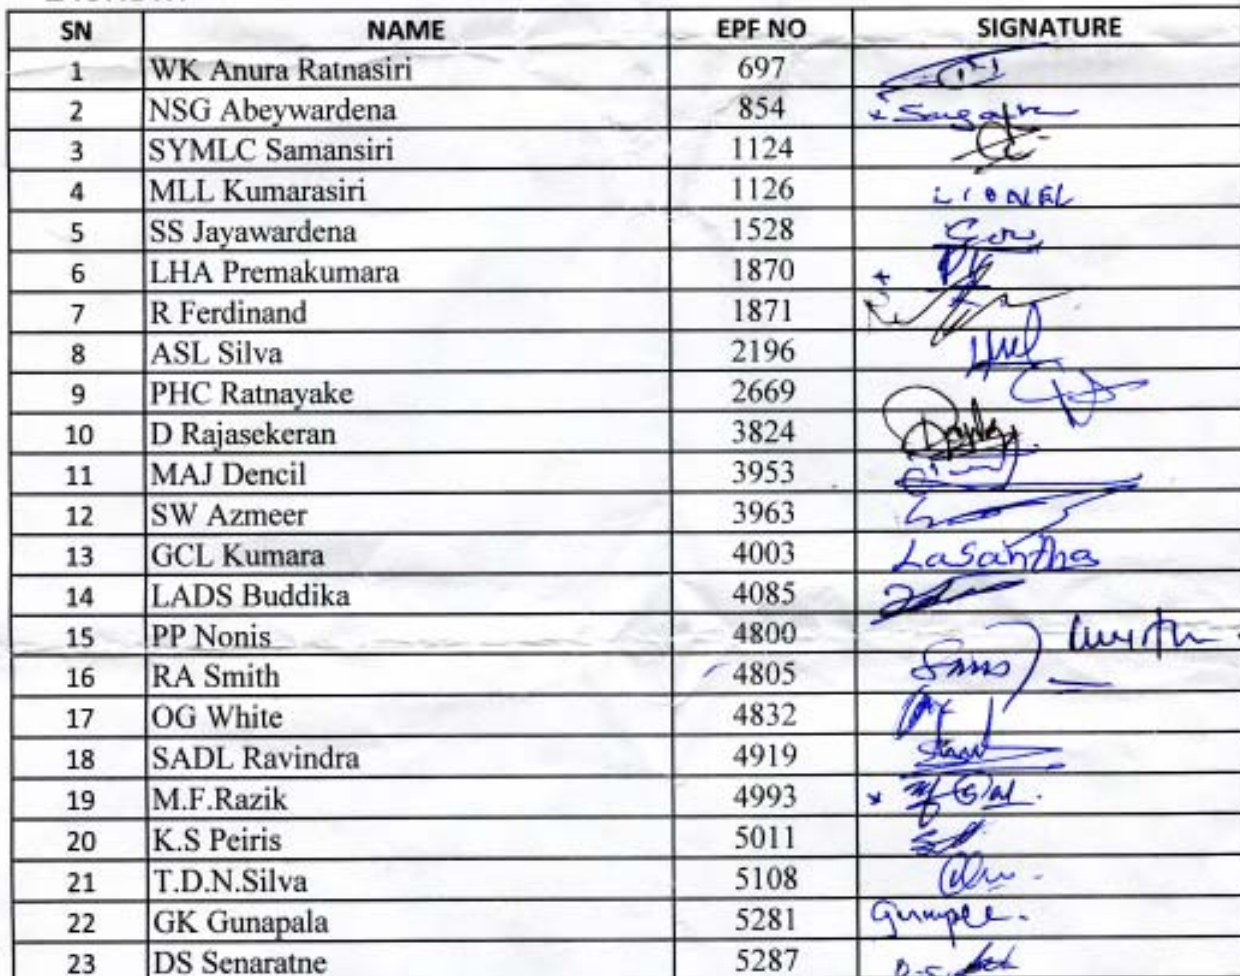 SN NAME EPF NO SIGNATURE
1 WK Anura Ratnasiri 697
2 NSG Abeywardena 854
3 SYMLC Samansiri 1124
4 MLL Kumarasiri 1126 LIONEL
5 SS Jayawardena 1528
6 LHA Premakumara 1870
7 R Ferdinand 1871
8 ASL Silva 2196
9 PHC Ratnayake 2669
10 D Rajasekeran 3824
11 MAJ Dencil 3953
12 SW Azmeer 3963
13 GCL Kumara 4003 Lasantha
14 LADS Buddika 4085
15 PP Nonis 4800
16 RA Smith 4805
17 OG White 4832
18 SADL Ravindra 4919
19 M.F.Razik 4993
20 K.S Peiris 5011
21 T.D.N.Silva 5108
22 GK Gunapala 5281
23 DS Senaratne 5287